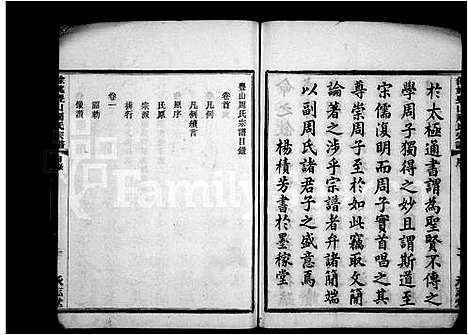 於太極通書謂為聖賢不傳之
學周子獨得之妙且謂斯道至
宗儒復明而周子實首唱之其
尊崇周子至於如此竊取文簡
論著之涉乎宗譜者弁諸簡端
以副周氏諸君子之盛意焉
楊積芳書於墨稼堂
豐山周氏宗譜目錄
卷首
凡例
凡例續言
原序
氏原
宗派
排行
卷一
誥勅
像讚
Family